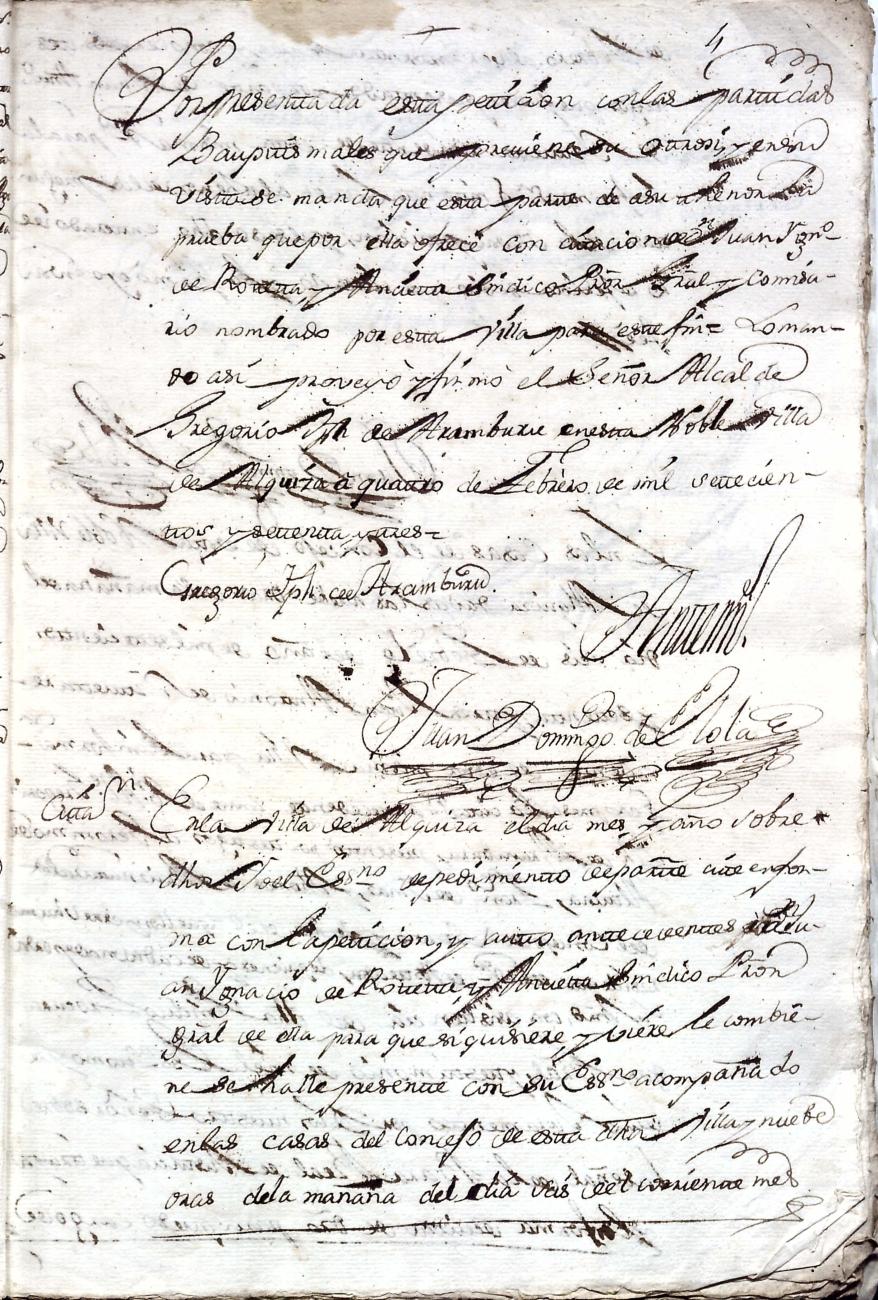 4
Por presentada esta peticion con las partidas
Bauptismales que previene su otrosi, y en su
vista se manda que esta parte de a su thenor la
prueba que por ella ofrece con citacion de Dn Juan Ygno
de Rotetta, y Ancietta Sindico Prõr Gral y Comisa-
rio nombrado por esta Villa para este fin = Loman-
do asi proveyò y firmò el Señor Alcalde
Gregorio Jph de Aramburu en esta Noble Villa
de Alquiza à quatro de Febrero de mil settecien-
tos y settenta y tres =
Gregorio Jph. de Aramburu
Antemi
Juan Domingo de Olola
Cittãn
En la Villa de Alquiza el dia mes y año sobre
dhos Yo el Essno de pedimiento de partte cite en for-
ma con la peticion, y autto antecedentes a Ju-
an Ygnacio de Rotetta, y Ancietta Sindico Prõr
gral de ella para que si quisiere y viere le combie-
ne se halle presente con su Essno acompañado
en las casas del Concejo de esta dha Villa y nuebe
oras de la mañana del dia seis del corriente mes